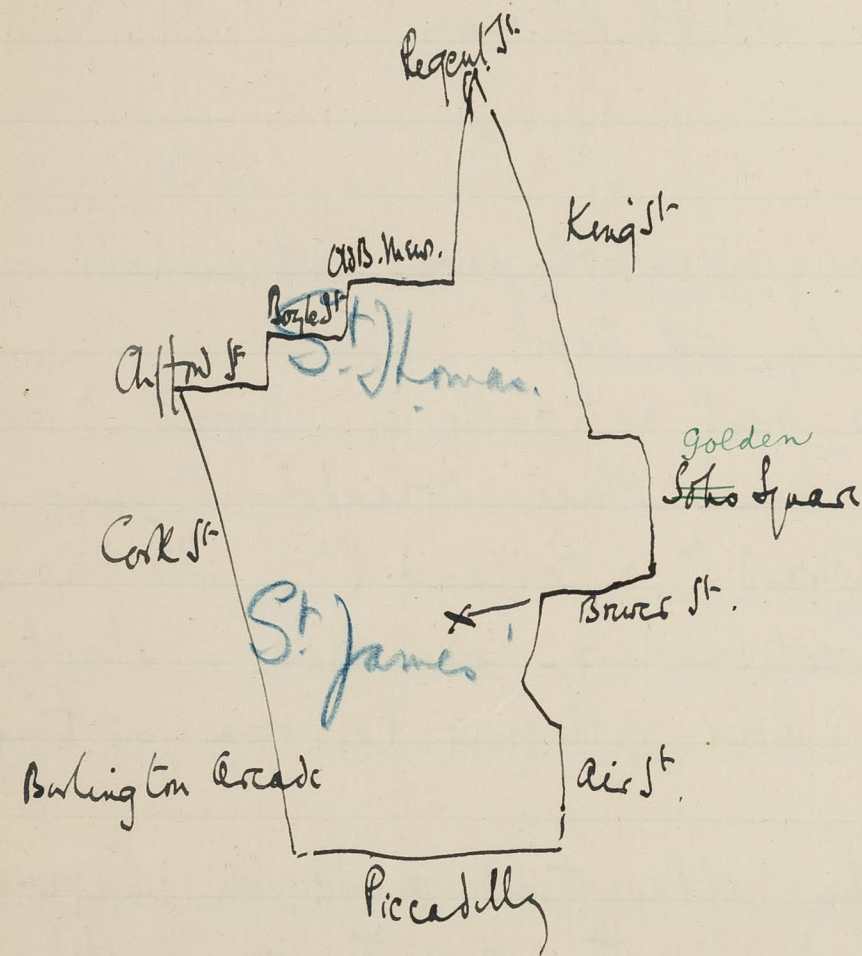 Regent St.
King St
Old B. Mews.
Boyle St
St Thomas.
Clifford St
Golden
Soho Square
Cork St
Brewer St.
St James'
Burlington Arcade
Air St.
Piccadilly